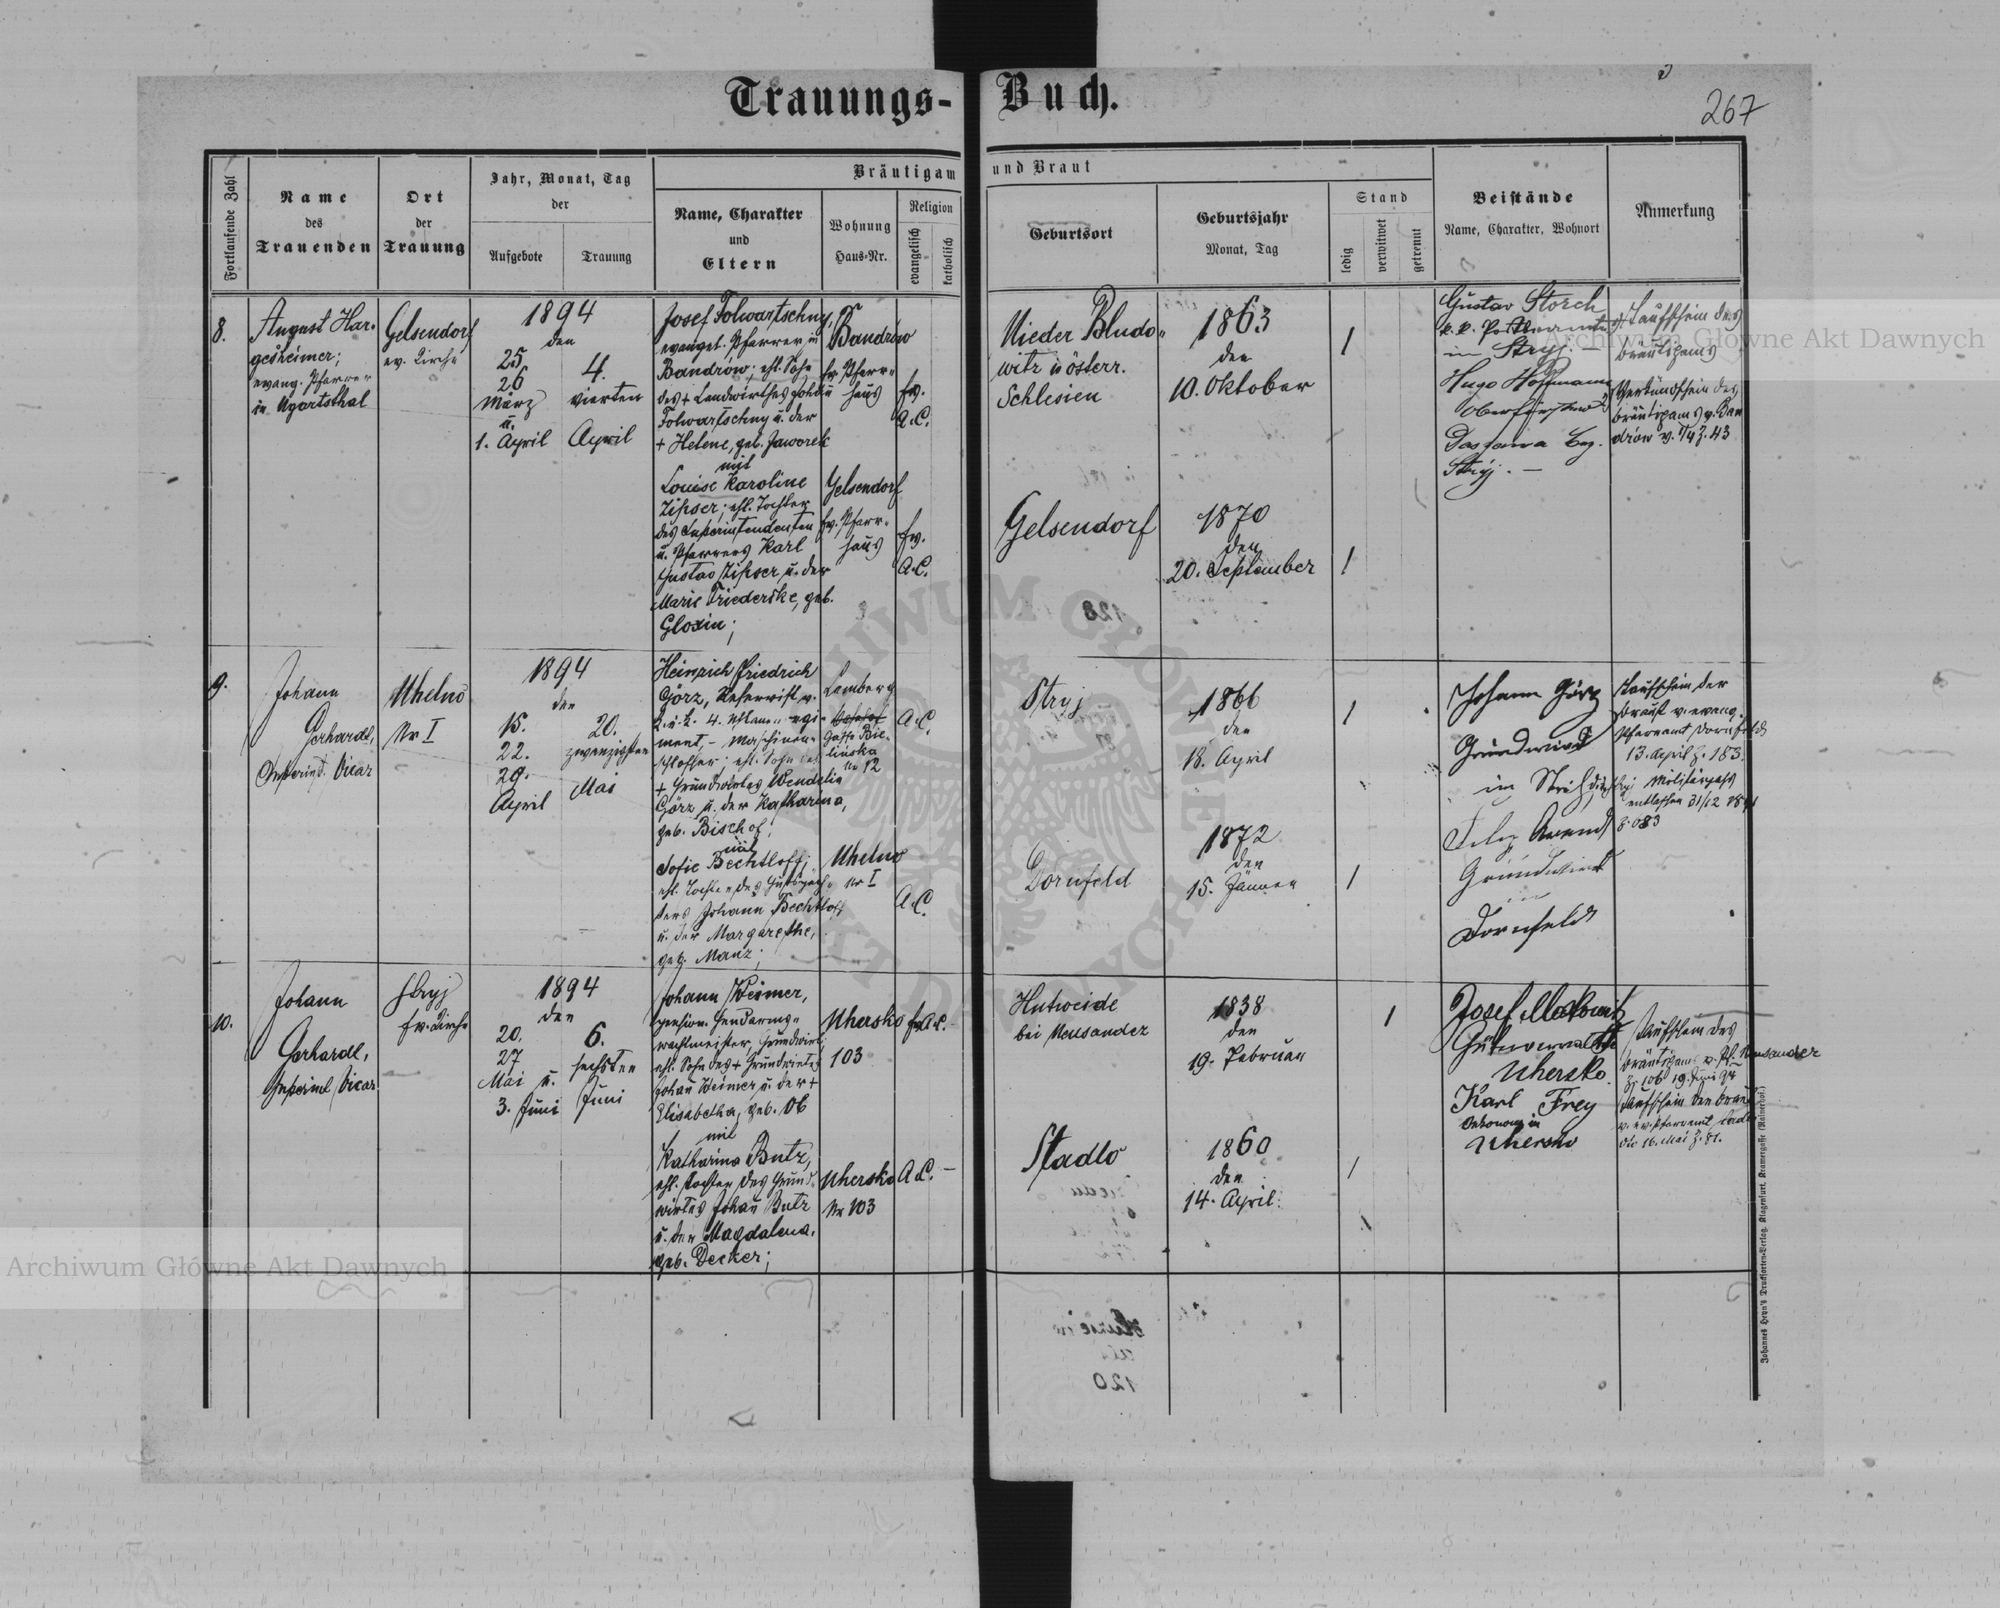 Trauungs-Buch.
267
Fortlaufende Zahl
Name
des
Trauenden
Ort
der
Trauung
Jahr, Monat, Tag
der
Aufgebote
Trauung
Bräutigam und Braut
Name, Charakter
und
Eltern
Wohnung
Haus-Nr.
Religion
evangelisch
katholisch
Geburtsort
Geburtsjahr
Monat, Tag
Stand
ledig
verwitwet
getrennt
Beistände
Name, Charakter, Wohnort
Anmerkung
8.
August Har-
gesheimer;
evang. Pfarrer
in Ugartsthal
Gelsendorf
ev. Kirche
1894
den
25
26
März
u.
1. April
4.
vierten
April
Josef Folwartschny,
evangel. Pfarrer in
Bandrów; ehl. Sohn
des + Landwirthes Johan
Folwartschny u. der
+ Helene, geb. Jaworek
mit
Louise Karoline
Zipser; ehl. Tochter
des Superintendenten
u. Pfarrers Karl
Gustav Zipser u. der
Marie Friederike, geb.
Gloxin;
Bandrów
ev. Pfarr-
haus
ev.
A.C.
Gelsendorf
ev. Pfarr-
haus
ev.
A.C.
Nieder Bludo-
witz in österr.
Schlesien
1863
den
10. Oktober
1
Gelsendorf
1870
den
20. September
1
Gustav Storch
k.k. Postbeamter
in Stryj. —
Hugo Hoffmann
Oberförster
Daszawa Bez.
Stryj. —
Taufschein des
Bräutigams
Verkündschein des
Bräutigams v. Ban
drów v. 1/4 Z. 43
9.
Johann
Gerhardt,
Superint. Vicar
Uhelno
Nr I
1894
den
15.
22.
29.
April
20.
zwanzigsten
Mai
Heinrich Friedrich
Görz, Reservist v.
k. u. k. 4. Uhlanen-Regi-
ment, - Maschinen-
schlosser; ehl. Sohn des
+ Grundwirtes Wendelin
Görz u. der Katharina,
geb. Bischof;
mit
Sofie Bechtloff;
ehl. Tochter des Gutspäch-
ters Johann Bechtloff
u. der Margarethe,
geb. Manz;
Lemberg
Gasse Bie-
linska
Nr 12
A.C.
Uhelno
Nr I
A.C.
Stryj
1866
den
18. April
1
Dornfeld
1872
den
15. Jänner
1
Johann Görz
Grundwirth
Grundwirth
in
Dornfeld
Taufschein der
Braut v. evang.
Pfarramt Dornfeld
13. April Z. 183.
Militärpass
entlassen 31/12 1891
10.
Johann
Gerhardt,
Superind. Vicar
Stryj
ev. Kirche
1894
den
20.
27
Mai u.
3. Juni
6.
sechsten
Juni
Johann Weimer,
pension. Gendarmen-
wachtmeister, Grundwirt,
ehl. Sohn des + Grundwirtes
Johan Weimer u. der +
Elisabetha, geb. Ob
mit
Katharina Butz,
ehl. Tochter des Grund-
wirtes Johan Butz
u. der Magdalena,
geb. Decker;
Uhersko
103
ev. A.C. —
Uhersko
Nr 103
A.C. —
Hutweide
bei Neusandez
1838
den
19. Februar
1
Stadlo
1860
den
14. April
1
Josef Makowitz
Gutsverwalter
Uhersko.
Karl Frey
Oekonom in
Uhersko
Taufschein des
Bräutigams v. Pf. Neusandez
Taufschein der Braut
v. ev. Pfarramt Stadlo
dto 16. Mai Z. 81.
Johannes Heyn's Drucksorten-Verlag, Klagenfurt, Kramergasse (Mainerhof).
Archiwum Główne Akt Dawnych
Archiwum Główne Akt Dawnych
ARCHIWUM GŁÓWNE AKT DAWNYCH